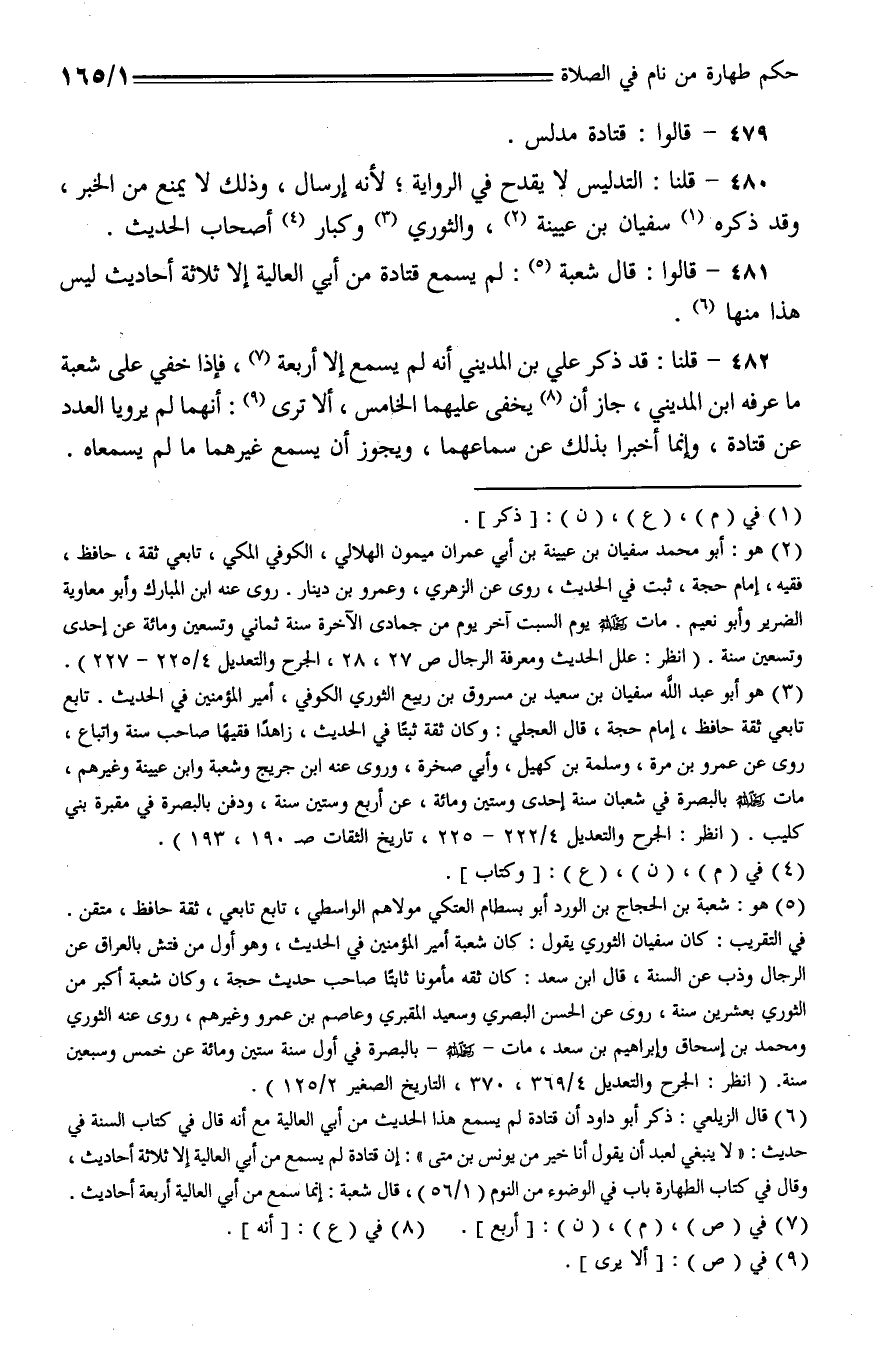 حكم طهارة من نام في الصلاة ١٦٥/١
٤٧٩ - قالوا : قتادة مدلس .
٤٨٠ - قلنا : التدليس لا يقدح في الرواية ؛ لأنه إرسال ، وذلك لا يمنع من الخبر ،
وقد ذكره (١) سفيان بن عيينة (٢) ، والثوري (٣) وكبار (٤) أصحاب الحديث .
٤٨١ - قالوا : قال شعبة (٥) : لم يسمع قتادة من أبي العالية إلا ثلاثة أحاديث ليس
هذا منها (٦) .
٤٨٢ - قلنا : قد ذكر علي بن المديني أنه لم يسمع إلا أربعة (٧) ، فإذا خفي على شعبة
ما عرفه ابن المديني ، جاز أن (٨) يخفى عليهما الخامس ، ألا ترى (٩) : أنهما لم يرويا العدد
عن قتادة ، وإنما أخبرا بذلك عن سماعهما ، ويجوز أن يسمع غيرهما ما لم يسمعاه .
(١) في ( م ) ، ( ع ) ، ( ن ) : [ ذكر ] .
(٢) هو : أبو محمد سفيان بن عيينة بن أبي عمران ميمون الهلالي ، الكوفي المكي ، تابعي ثقة ، حافظ ،
فقيه ، إمام حجة ، ثبت في الحديث ، روى عن الزهري ، وعمرو بن دينار . روى عنه ابن المبارك وأبو معاوية
الضرير وأبو نعيم . مات رحمه الله يوم السبت آخر يوم من جمادى الآخرة سنة ثماني وتسعين ومائة عن إحدى
وتسعين سنة . ( انظر : علل الحديث ومعرفة الرجال ص ٢٧ ، ٢٨ ، الجرح والتعديل ٢٢٥/٤ - ٢٢٧ ) .
(٣) هو أبو عبد اللَّه سفيان بن سعيد بن مسروق بن ربيع الثوري الكوفي ، أمير المؤمنين في الحديث . تابع
تابعي ثقة حافظ ، إمام حجة ، قال العجلي : وكان ثقة ثبتًا في الحديث ، زاهدًا فقيهًا صاحب سنة واتباع ،
روى عن عمرو بن مرة ، وسلمة بن كهيل ، وأبي صخرة ، وروى عنه ابن جريج وشعبة وابن عيينة وغيرهم ،
مات رحمه الله بالبصرة في شعبان سنة إحدى وستين ومائة ، عن أربع وستين سنة ، ودفن بالبصرة في مقبرة بني
كليب . ( انظر : الجرح والتعديل ٢٢٢/٤ - ٢٢٥ ، تاريخ الثقات صـ ١٩٠ ، ١٩٣ ) .
(٤) في ( م ) ، ( ن ) ، ( ع ) : [ وكتاب ] .
(٥) هو : شعبة بن الحجاج بن الورد أبو بسطام العتكي مولاهم الواسطي ، تابع تابعي ، ثقة حافظ ، متقن .
في التقريب : كان سفيان الثوري يقول : كان شعبة أمير المؤمنين في الحديث ، وهو أول من فتش بالعراق عن
الرجال وذب عن السنة ، قال ابن سعد : كان ثقه مأمونا ثابتًا صاحب حديث حجة ، وكان شعبة أكبر من
الثوري بعشرين سنة ، روى عن الحسن البصري وسعيد المقبري وعاصم بن عمرو وغيرهم ، روى عنه الثوري
ومحمد بن إسحاق وإبراهيم بن سعد ، مات - رحمه الله - بالبصرة في أول سنة ستين ومائة عن خمس وسبعين
سنة. ( انظر : الجرح والتعديل ٣٦٩/٤ ، ٣٧٠ ، التاريخ الصغير ١٢٥/٢ ) .
(٦) قال الزيلعي : ذكر أبو داود أن قتادة لم يسمع هذا الحديث من أبي العالية مع أنه قال في كتاب السنة في
حديث : « لا ينبغي لعبد أن يقول أنا خير من يونس بن متى » : إن قتادة لم يسمع من أبي العالية إلا ثلاثة أحاديث ،
وقال في كتاب الطهارة باب في الوضوء من النوم ( ٥٦/١ ) ، قال شعبة : إنما سمع من أبي العالية أربعة أحاديث .
(٧) في ( ص ) ، ( م ) ، ( ن ) : [ أربع ] . (٨) في ( ع ) : [ أنه ] .
(٩) في ( ص ) : [ ألا يرى ] .